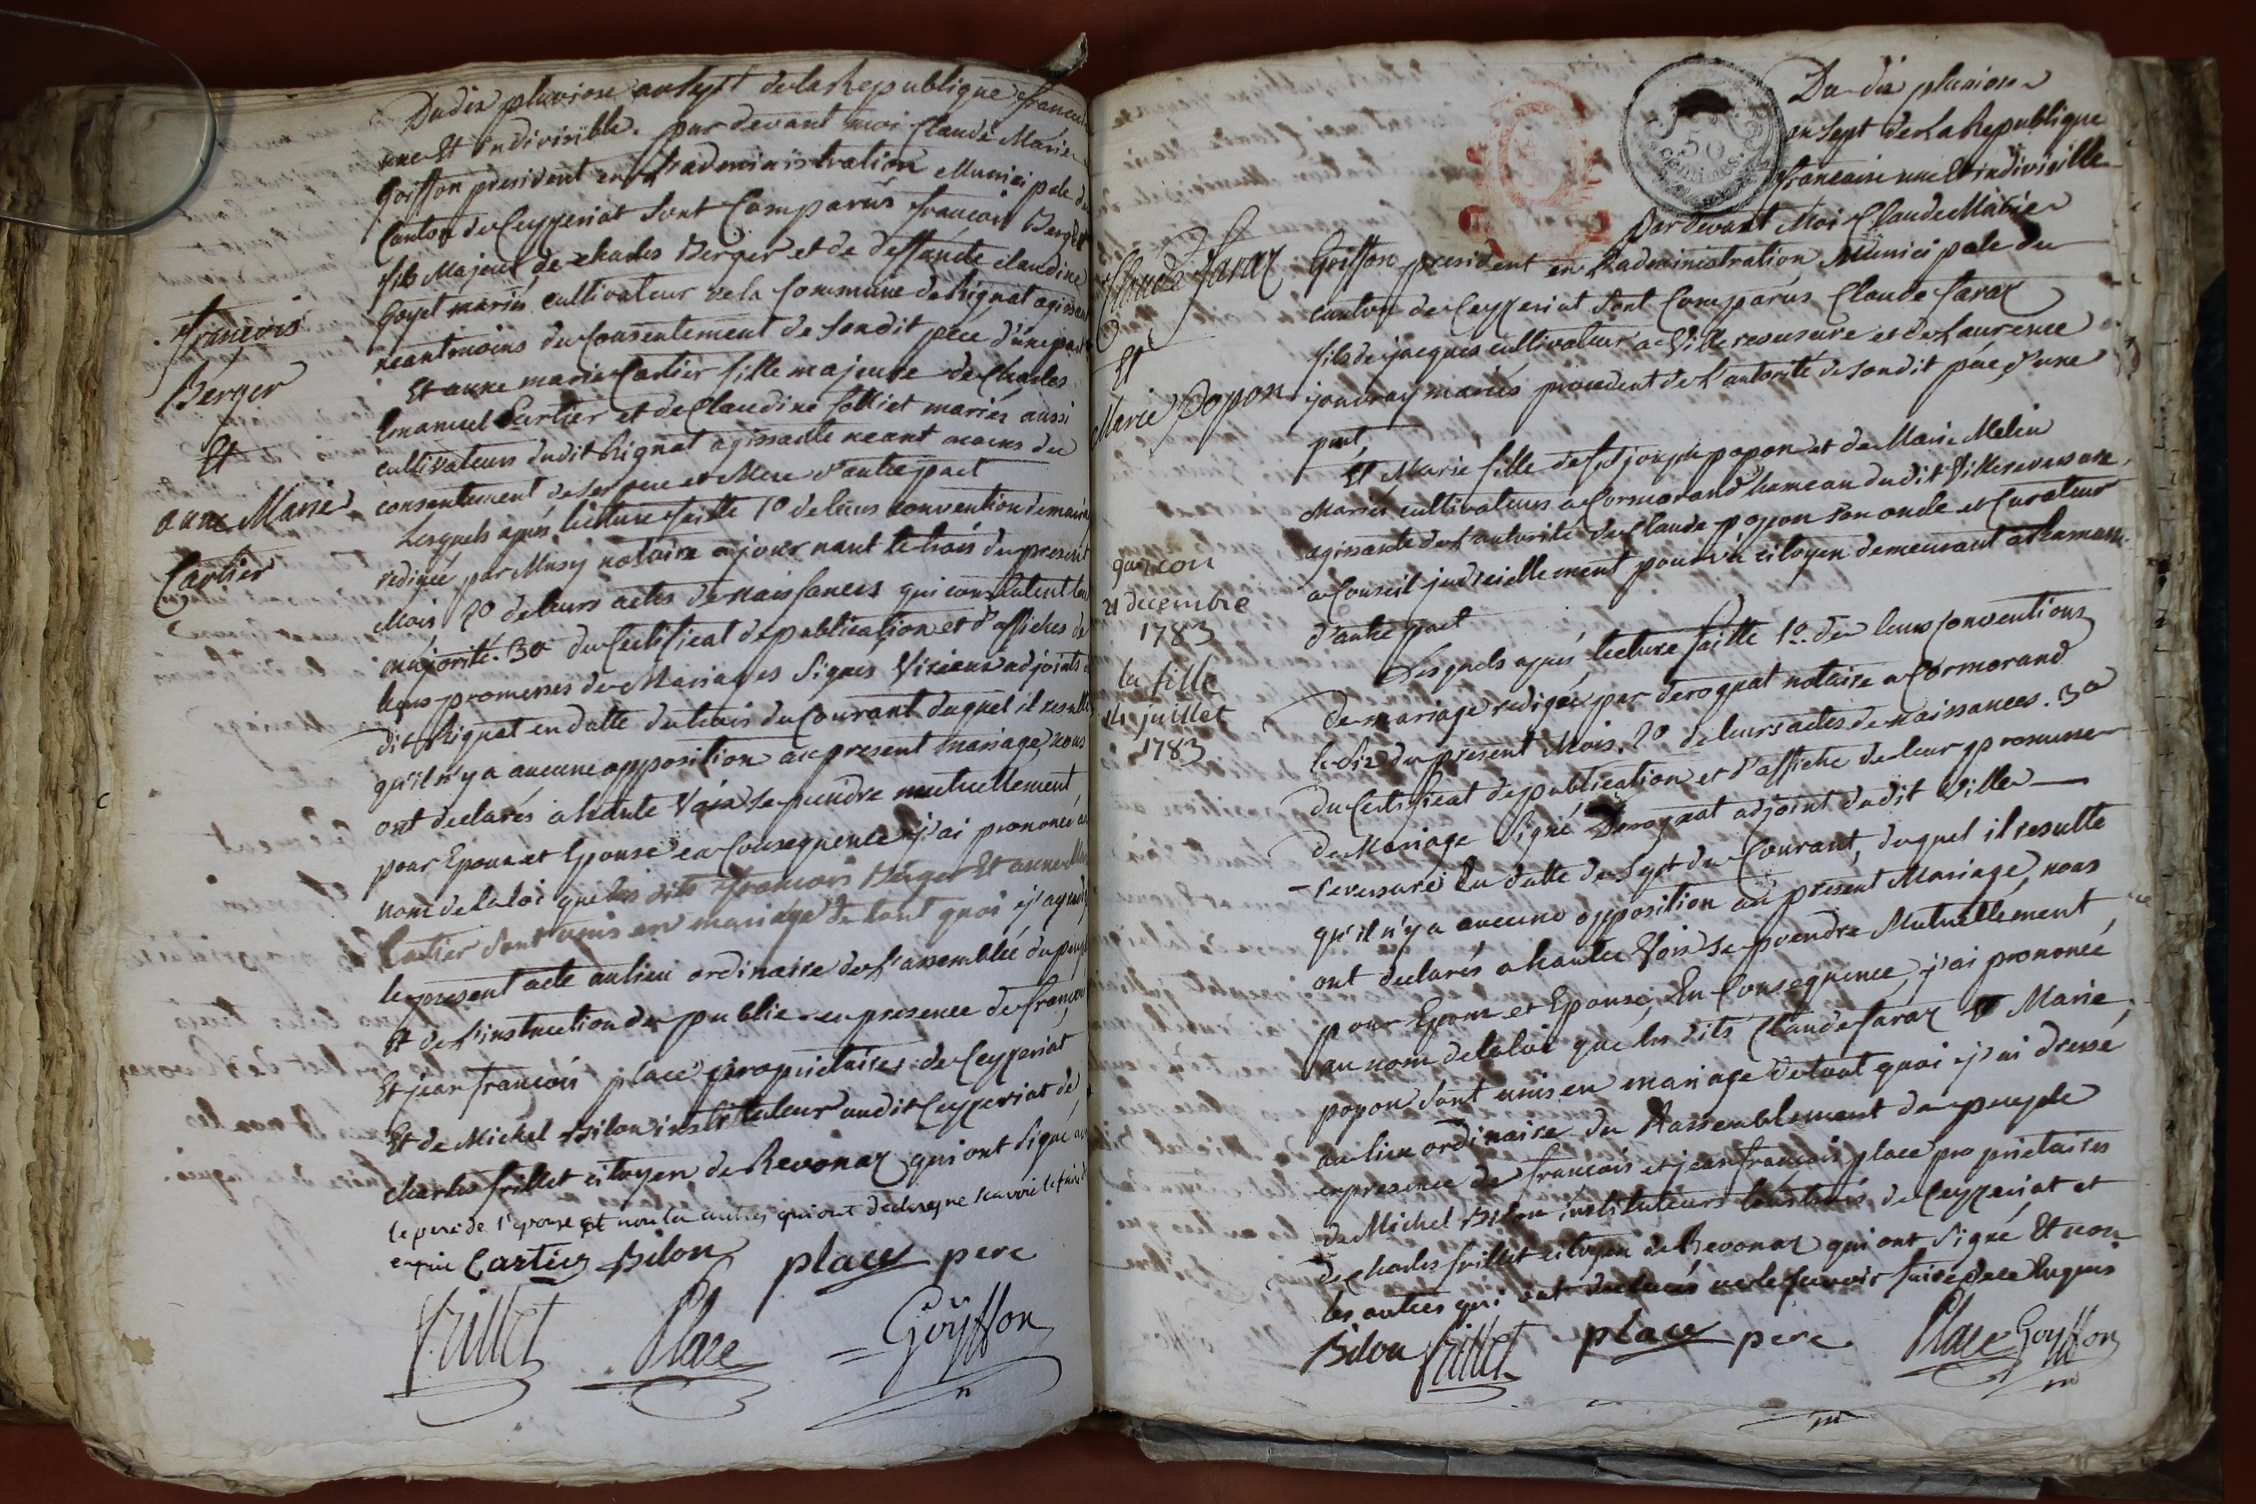 Du dix pluviose an Sept de la Republique francaise
une Et indivisible. par devant moi Claude Marie
Goiffon president en L'administration Municipale du
Canton de Ceyzeriat Sont Comparus francois Berger
fils Majeur de charles Berger et de deffunte claudine
Goyet mariés cultivateur de la Commune de Rignat agissant
neantmoins du Consentement de Sondit pere d'une part
François
Berger
Et
anne Marie
Cartier
Et anne marie Cartier fille majeure de Charles
Emanuel Cartier et de Claudine folliet mariés aussi
cultivateurs dudit Rignat agissante neant moins du
consentement de Ses pere et Mere d'autre part
Lesquels après lecture faitte 1o de leurs convention de mariage
redigée par Musy notaire a jour nant le trois du present
Mois 2o de leurs actes de naissances qui constatent leur
majorité. 3o du Certificat de publication et d'affiches de
leurs promesses de Mariages Signes adjoint
dit Rignat en datte du trois du Courant duquel il resulte
qu'il n'y a aucune opposition au present mariage, nous
ont declarés a haute Voix Se prendre mutuellement
pour Epoux et Epouse en Consequence j'ai prononcé au
nom de la loi que les dits francois Berger Et anne Marie
Cartier Sont unis en mariage de tout quoi j'ai
le present acte au lieu ordinaire de L'assemblée du peuple
Et de L'instruction publie en presence de françois
Et jean françois place proprietaires de Ceyzeriat
Et de Michel Bilon instituteur audit Ceyzeriat de
charles frillet citoyen de Revonaz qui ont Signé avec
le pere de l'epouse et non les autres qui ont declaré ne scavoir le faire
enquis Cartier Bilon place pere
frillet Place Goyffon
Du dix pluviose
an Sept de La Republique
francaise une Et indivisible
Par devant Moi Claude Marie
Goiffon president en L'administration Municipale du
canton de Ceyzeriat Sont Comparus Claude faraz
fils de jacques cultivateur a Villereversure et de Laurence
joudray mariés procedent de L'autorité de Sondit père, d'une
part,
Claude faraz
Et
Marie Popon
Et Marie fille de fut joseph popon et de Marie Melin
Mariés cultivateurs a Cormorand hameau dudit Villereversure
agissante de L'autorité de Claude popon Son oncle et Curateur
a Conseil judiciellement pourvu citoyen demeurant a Ramasse
d'autre part
garçon
21 decembre
1783
la fille
14 juillet
1783
Lesquels après lecture faitte 1o. de leurs Conventions
de mariage redigée par derognat notaire a Cormorand
le dix du present Mois. 2o de leurs actes de naissances. 3o
du Certificat de publication et d'affiche de leur promesse
de Mariage Signé Derognat adjoint dudit Ville
reversure En datte du Sept du Courant, duquel il resulte
qu'il n'y a aucune opposition au present Mariage, nous
ont declarés a haute Voix Se prendre Mutuellement
pour Epoux et Epouse, En Consequence, j'ai prononcé
au nom de la loi que les dits Claude faraz Et Marie
popon Sont unis en mariage de tout quoi j'ai dressé
au lieu ordinaire du Rassemblement du peuple
en presence de francois et jean francois place proprietaires
de Michel Bilon instituteurs de Ceyzeriat et
de Charles frillet citoyen de Revonaz qui ont Signé Et non
les autres qui ont declarés ne le Scavoir faire de ce Enquis
Bilon frillet place pere Place Goyffon